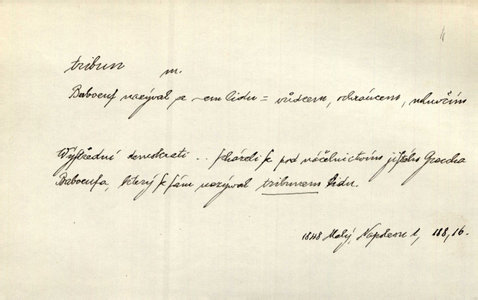 tribun m.
Baboeuf nazýval se -em lidu = vůdcem, ochráncem, mluvčím
Výstřední demokrati .. scházeli se pod náčelnictvím jistého Graccha
Baboeufa, který se sám nazýval tribunem lidu.
1848 Malý, Napoleon I, 188,16.